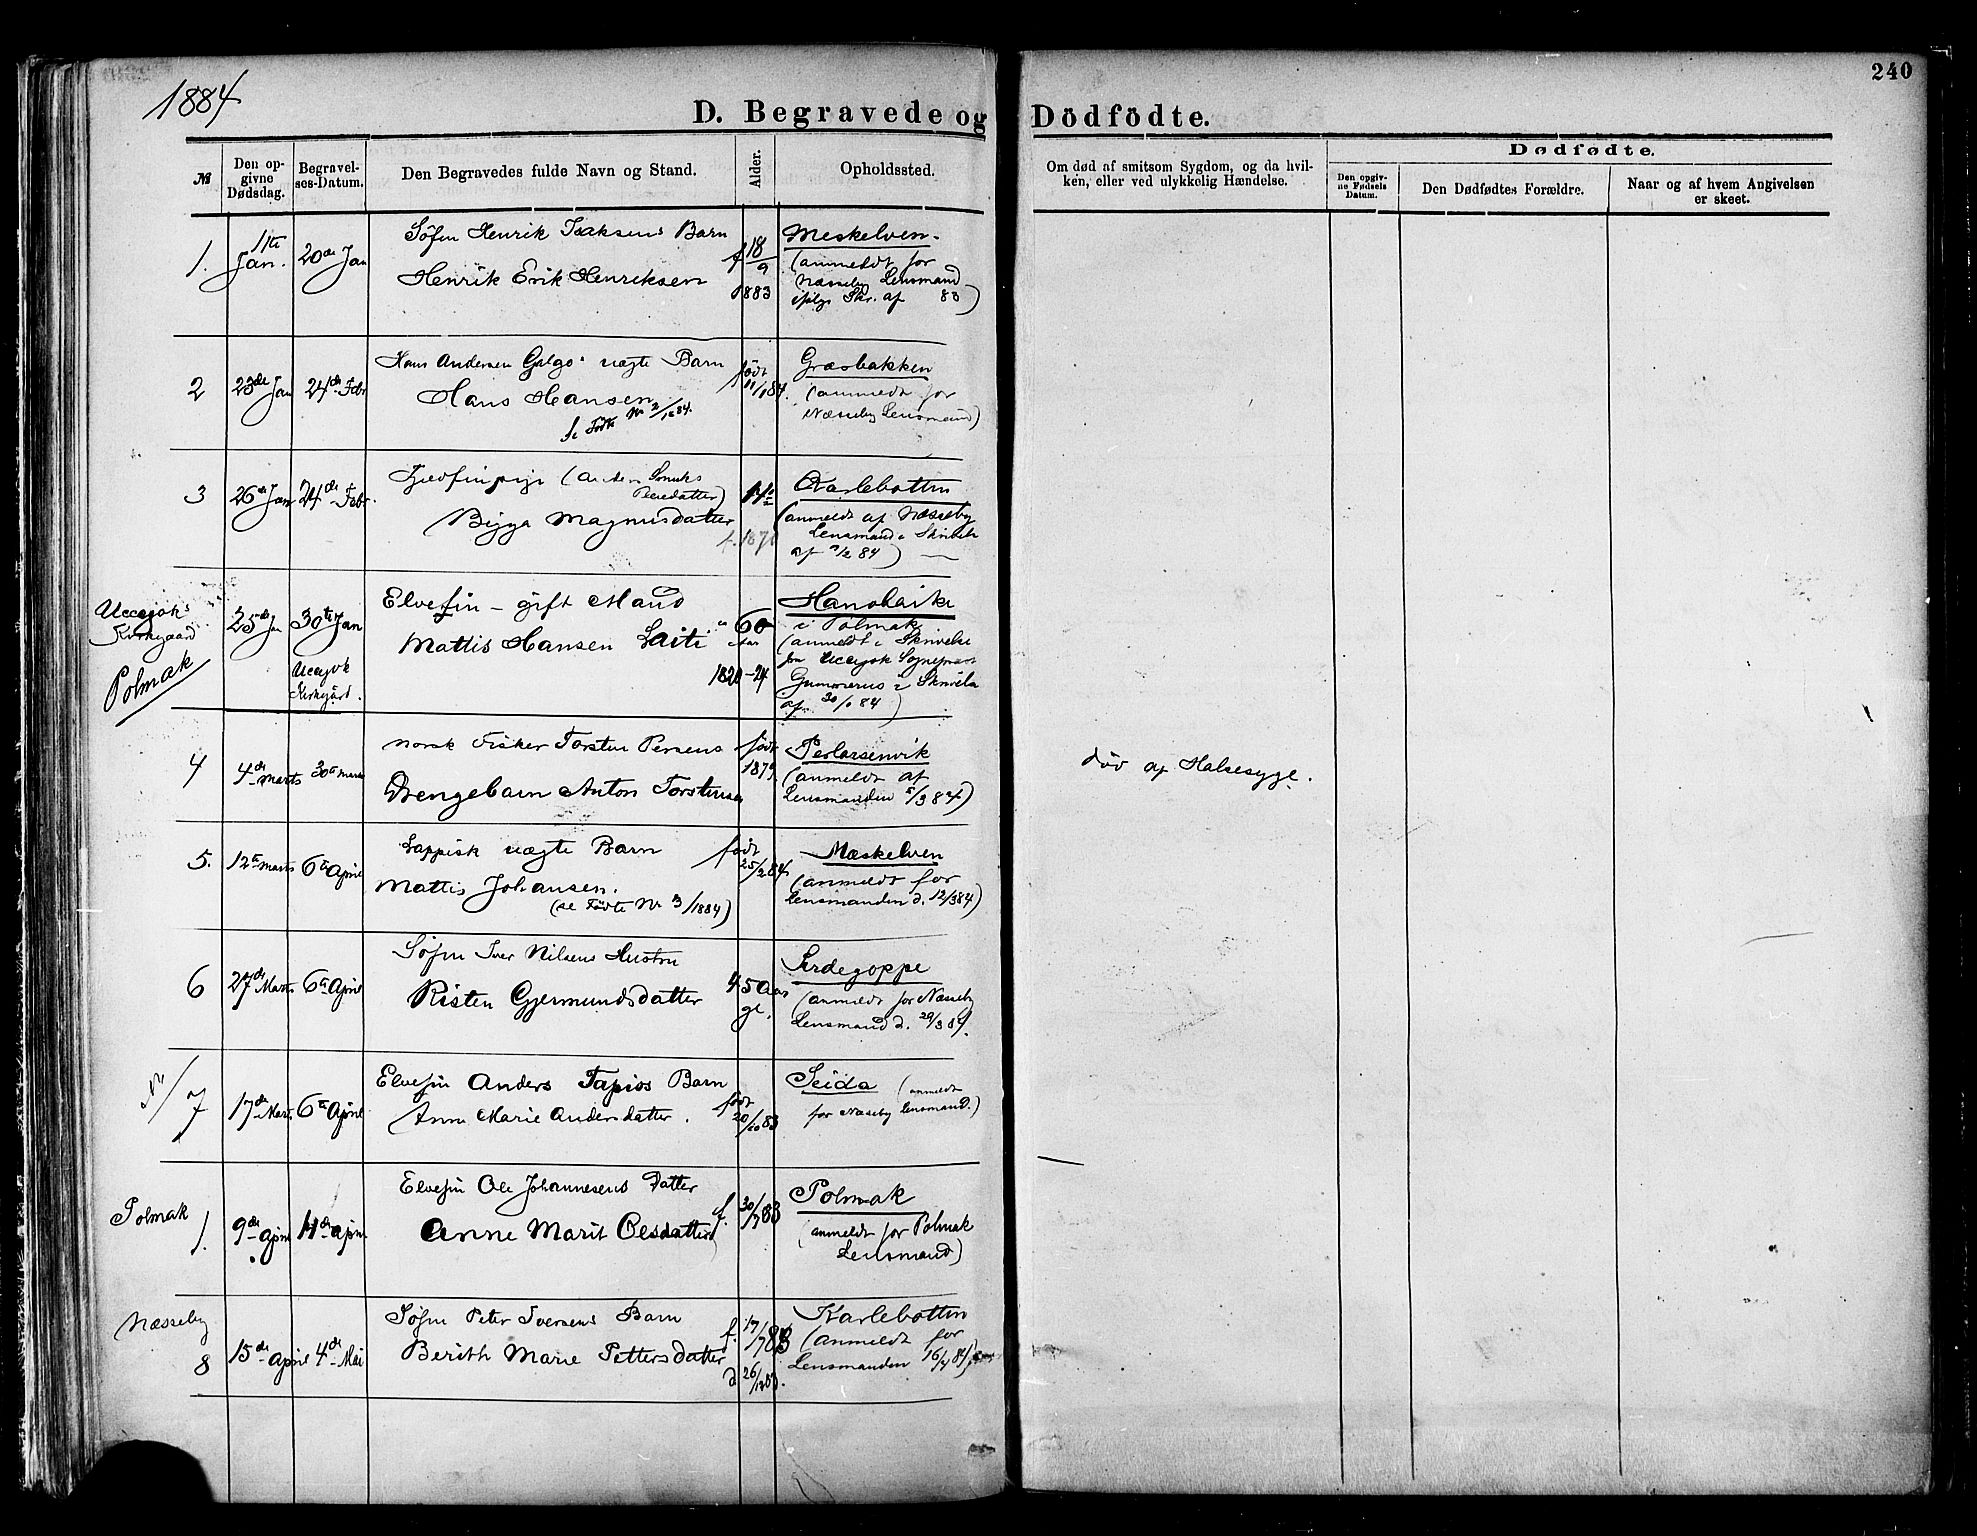 240
1884
D. Begravede og Dödfödte.
№
Den op-
givne
Dødsdag.
Begravel-
ses-Datum.
Den Begravedes fulde Navn og Stand.
Alder.
Opholdssted.
Om død af smitsom Sygdom, og da hvil-
ken, eller ved ulykkelig Hændelse.
Dødfødte.
Den opgiv-
ne Fødsels
Datum.
Den Dødfødtes Forældre.
Naar og af hvem Angivelsen
er skeet.
1.
11te
Jan.
20de Jan
Søfin Henrik Isaksens Barn
Henrik Erik Henriksen
f 18/9
1883
Meskelven.
(anmeldt for
Næsseby Lensmand
ifølge Skr. af 83)
2
23de Jan
24de Febr
Hans Andersen Galgo's uægte Barn
Hans Hansen
se Fødte Nr 2/1884.
født
11/1 84.
Græsbakken
(anmeldt for
Næsseby Lensmand)
3
26de Jan
24de Febr.
Bigga Magnusdatter
f. 187
Karlebotten
(anmeldt af Næsseby
Lensmand i Skrivelse
af 84)
Uccejok
Kirkegaard
Polmak
25de Jan
30te Jan
Uccejok
Kirkegård.
Elvefin – gift Mand
Mattis Hansen Laiti
60
Aar
1820–24
i Polmak
(anmeldt i Skrivelse
fra Uccejok Sognepræst
Gummerus i Skrivelse
af 30/1 84)
4
4de Marts
30te Marts
Norsk Fisker Torsten Persens
Drengebarn Anton Torstensen
født
187
Perlarsenvik
(anmeldt af
Lensmanden 5/3 84)
død af Halsesyge.
5.
12te Marts
6te April
Lappisk uægte Barn
Mattis Johansen.
(se Fødte Nr 3/1884)
født
25/2 84
Mæskelven
(anmeldt for
Lensmanden d. 12/3 84)
6
27de Marts
6te April
Søfin Iver Nilsens Hustru
Risten Gjermundsdatter
45 Aar
gl.
Serdegoppe
(anmeldt for Næsseby
Lensmand d. 29/3 84.
N/
7
17de Marts
6te April
Elvefin Anders Tapios Barn
Anne Marie Andersdatter.
født
20/10 83
Seida (anmeldt
for Næsseby Lensmand.)
Polmak
1.
9de April
14de April
Elvefin Ole Johannesens Datter
Anne Marit Olesdatter
f. 30/7 83
Polmak
(anmeldt for Polmak
Lensmand)
Næsseby
8
15de April
4de Mai
Søfin Peter Iversens Barn
Berith Marie Pettersdatter
f. 17/7 83
d 26/12 83.
Karlebotten
(anmeldt for
Lensmanden 16/4 84)